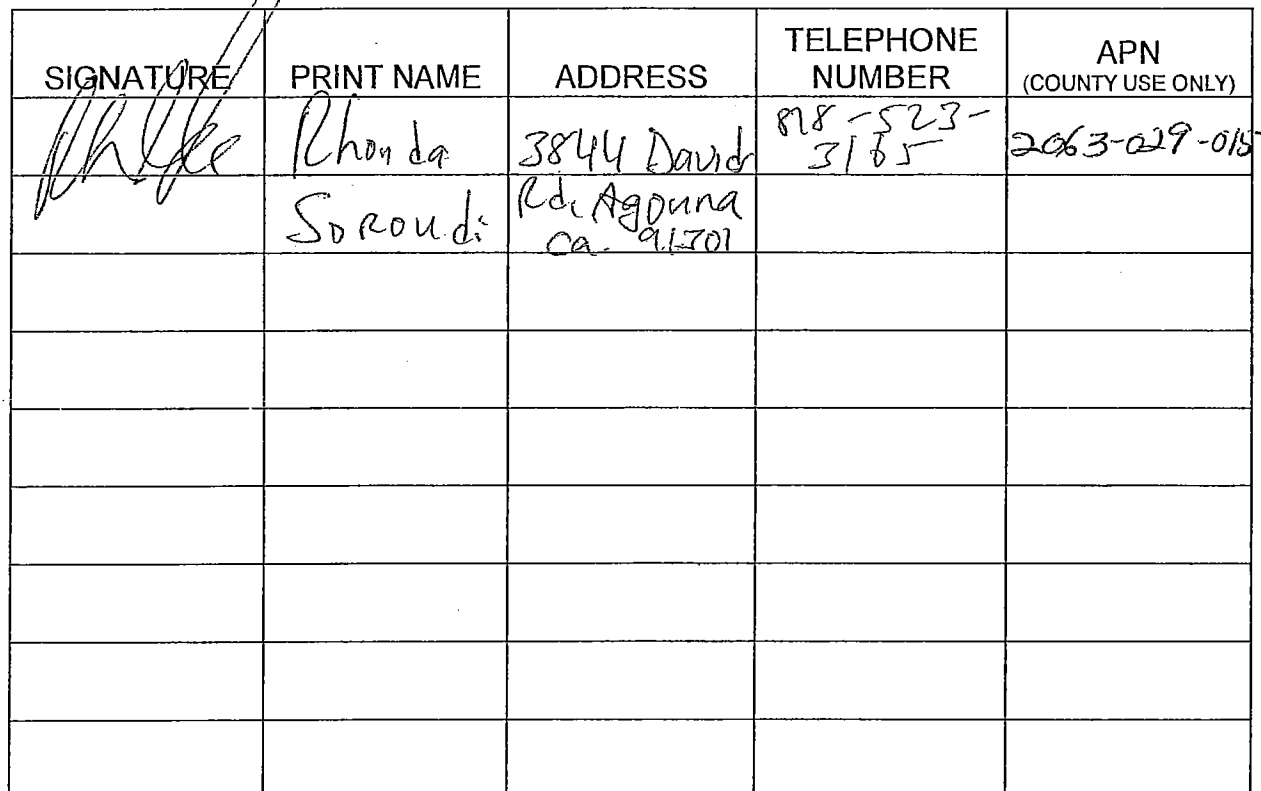 SIGNATURE PRINT NAME ADDRESS TELEPHONE NUMBER APN (COUNTY USE ONLY)
Rhonda 3844 David 818-523-3165 2063-029-015
Soroudi Rd. Agoura
ca. 91301